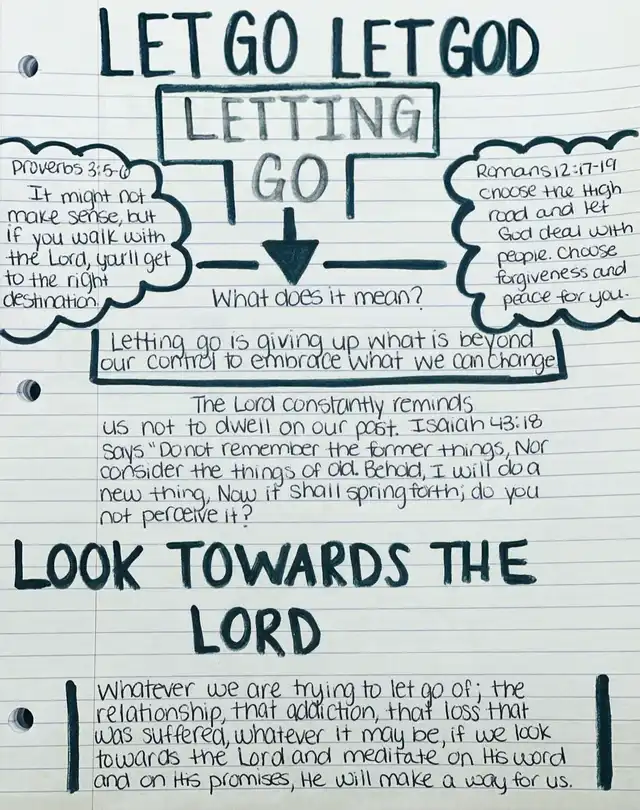 LET GO LET GOD
LETTING
GO
Proverbs 3:5-6
It might not
make sense, but
if you walk with
the Lord, you'll get
to the right
destination.
Romans 12:17-19
choose the High
road and let
God deal with
people. Choose
forgiveness and
peace for you.
What does it mean?
Letting go is giving up what is beyond
our control to embrace what we can change
The Lord constantly reminds
us not to dwell on our past. Isaiah 43:18
says "Do not remember the former things, Nor
consider the things of old. Behold, I will do a
new thing, Now it shall spring forth; do you
not perceive it?
LOOK TOWARDS THE
LORD
Whatever we are trying to let go of; the
relationship, that addiction, that loss that
was suffered, whatever it may be, if we look
towards the Lord and meditate on His word
and on His promises, He will make a way for us.